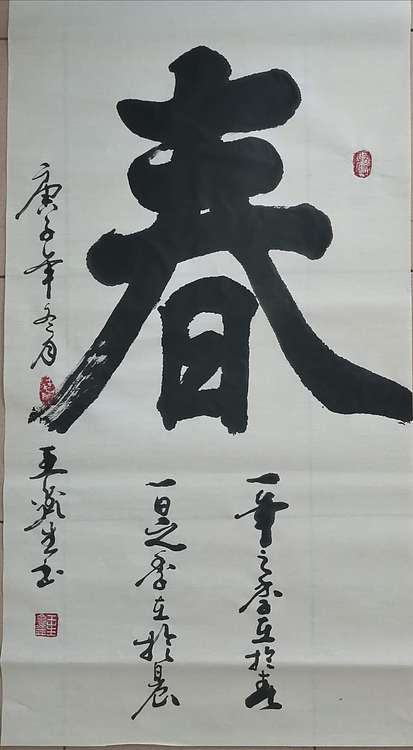 春
一年之季在於春
一日之季在於晨
庚子年冬月
王生书